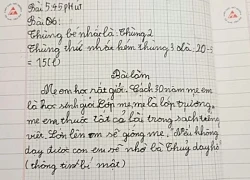 Bài 5: 45 phút
Bài 6:
Thùng bé nhất là Thùng 2
Thùng thứ nhất kém thùng 3 là: 20-5
= 15(l)
Bài làm
Mẹ em học rất giỏi. Cách 30 năm mẹ em
là học sinh giỏi. Lớp mẹ, mẹ là lớp trưởng,
mẹ em thuộc tất cả bài trong sách tiếng
việt. Lớn lên em sẽ giống mẹ. Nếu không
dạy được con em sẽ nhờ là Thuỷ dạy hộ
(thông tin bí mật)